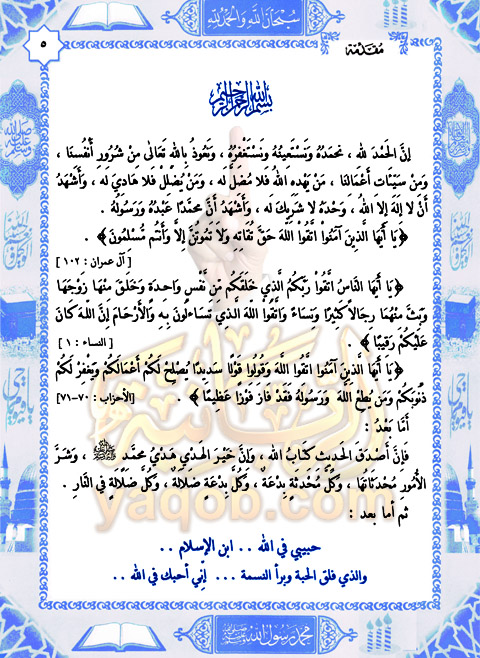 سُبْحَانَ اللهِ وَالحَمْدُ للهِ
مُقَدِّمَة
٥
بسم الله الرحمن الرحيم
إِنَّ الحَمْدَ لله ، نَحمَدُهُ وَنَسْتَعِينُهُ وَنَسْتَغْفِرُهُ ، وَنَعُوذُ بِاللهِ تَعَالَى مِنْ شُرُورِ أَنْفُسِنَا ،
وَمِنْ سَيِّئَاتِ أَعْمَالنَا ، مَنْ يَهْدِهِ اللهُ فَلا مُضلَّ لَه ، وَمَنْ يُضْلِلْ فَلا هَادِيَ لَه ، وَأَشْهَدُ
أَنْ لا إِلَهَ إِلا اللهُ ، وَحْدَهُ لا شَرِيكَ لَه ، وَأَشْهَدُ أَنَّ محمَّدًا عَبْدُهُ وَرَسُولُهُ .
﴿يَا أَيهَا الذِينَ آمَنُوا اتَّقُوا اللهَ حَقَّ تُقَاتِهِ وَلا تَمُوتُنَّ إِلاَّ وَأَنتُم مُّسْلِمُونَ﴾ .
[ آل عمران : ١٠٢ ]
﴿يَا أَيهَا النَّاسُ اتَّقُوا رَبَّكُمُ الَّذِي خَلَقَكُم مِّن نَّفْسٍ وَاحِدَةٍ وَخَلَقَ مِنْهَا زَوْجَهَا
وَبَثَّ مِنْهُمَا رِجَالاً كَثِيرًا وَنِسَاءً وَاتَّقُوا اللهَ الَّذِي تَسَاءَلُونَ بِهِ وَالأَرْحَامَ إِنَّ اللهَ كَانَ
عَلَيْكُمْ رَقِيبًا﴾ .
[ النساء : ١ ]
﴿يَا أَيهَا الَّذِينَ آمَنُوا اتَّقُوا اللهَ وَقُولُوا قَوْلًا سَدِيدًا يُصْلِحْ لَكُمْ أَعْمَالَكُمْ وَيَغْفِرْ لَكُمْ
ذُنُوبَكُمْ وَمَن يُطِعْ اللهَ وَرَسُولَهُ فَقَدْ فَازَ فَوْزًا عَظِيمًا﴾ .
[الأحزاب : ٧٠-٧١]
أَمَّا بَعْدُ :
فَإِنَّ أَصْدَقَ الحَدِيثِ كِتَابُ الله ، وَإِنَّ خَيْرَ الهَدْيِ هَدْيُ محمَّد ﷺ ، وَشَرَّ
الأُمُورِ مُحْدَثَاتُهَا ، وَكُلَّ مُحْدَثَةٍ بِدْعَة ، وَكُلَّ بِدْعَةٍ ضَلالَة ، وَكُلَّ ضَلَالَةٍ فِي النَّار .
ثم أما بعد :
حبيبي في الله .. ابن الإسلام ..
والذي فلق الحبة وبرأ النسمة ... إنّي أحبك في الله ..
yaqob.com
محمد رسول الله ﷺ